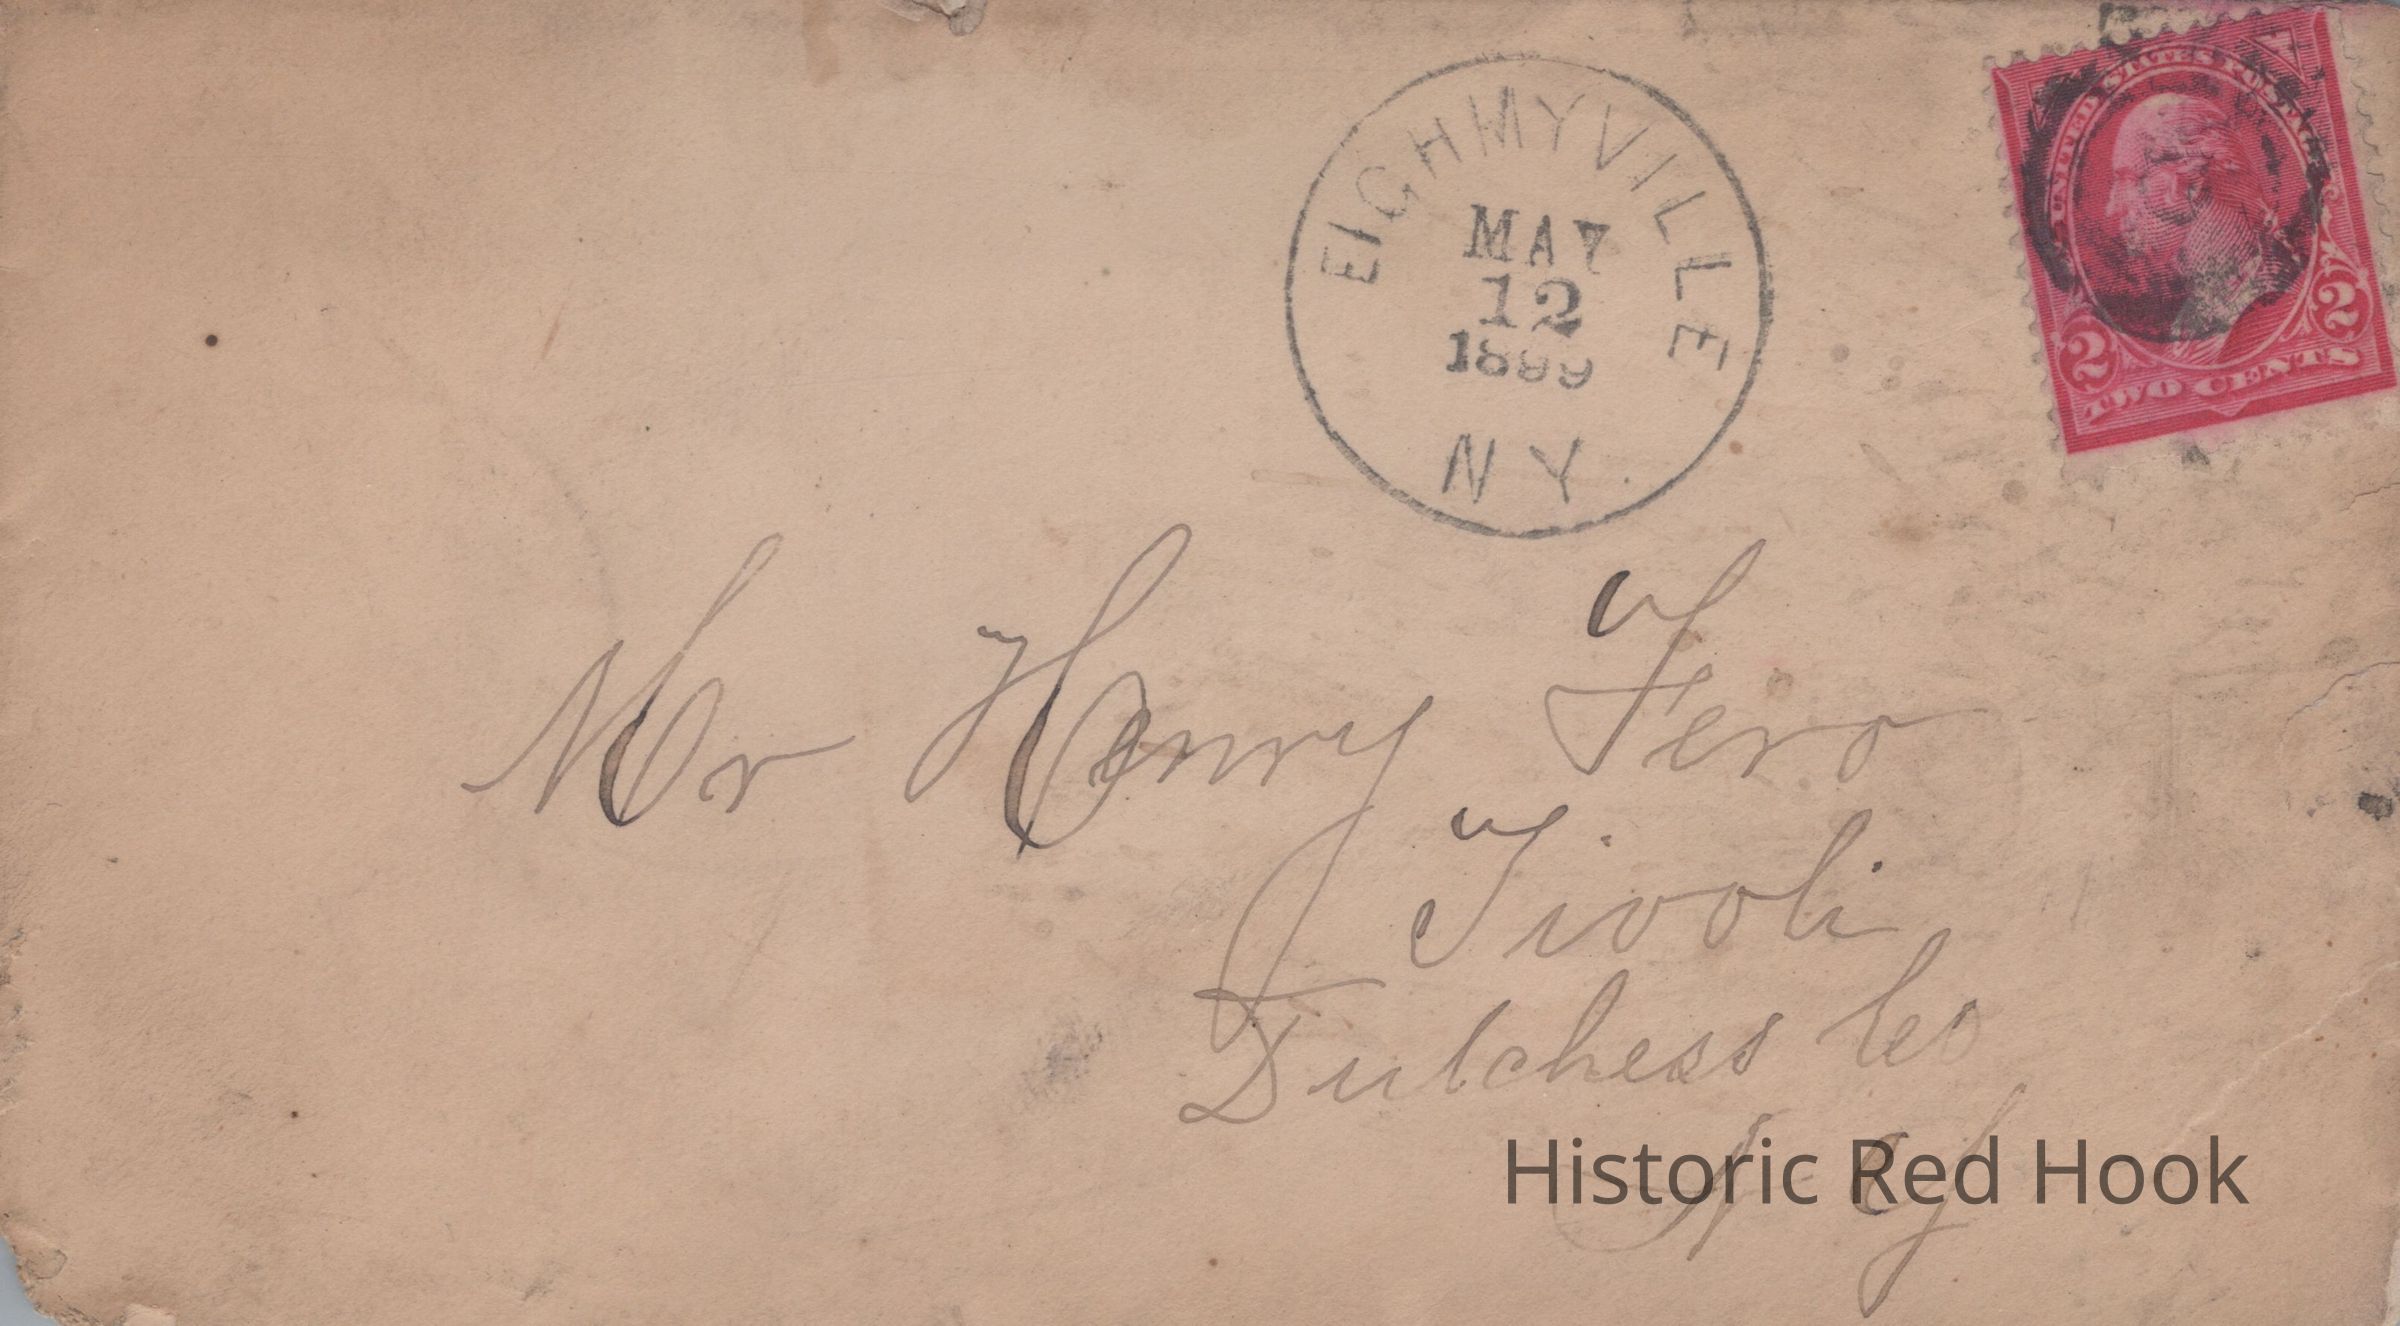 EIGHMYVILLE
MAY
12
1899
N Y.
UNITED STATES POSTAGE
2 2
TWO CENTS
Mr Henry Fero
Tivoli
Dutchess Co
N Y
Historic Red Hook